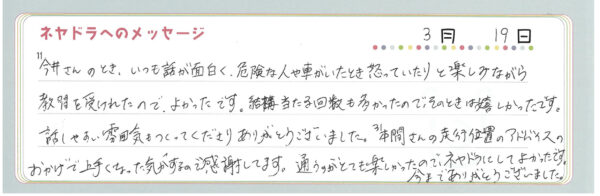 ネヤドラへのメッセージ
3月 19日
"今井さんのとき、いつも話が面白く、危険な人や車がいたとき怒っていたりと楽しみながら
教習を受けれたので、よかったです。結構当たる回数も多かったので、そのときは嬉しかったです。
話しやすい雰囲気もつくってくださりありがとうございました。本間さんの走行位置のアドバイスの
おかげで上手くなった気がするので感謝してます。通うのがとても楽しかったので、ネヤドラにしてよかったです。
今までありがとうございました。